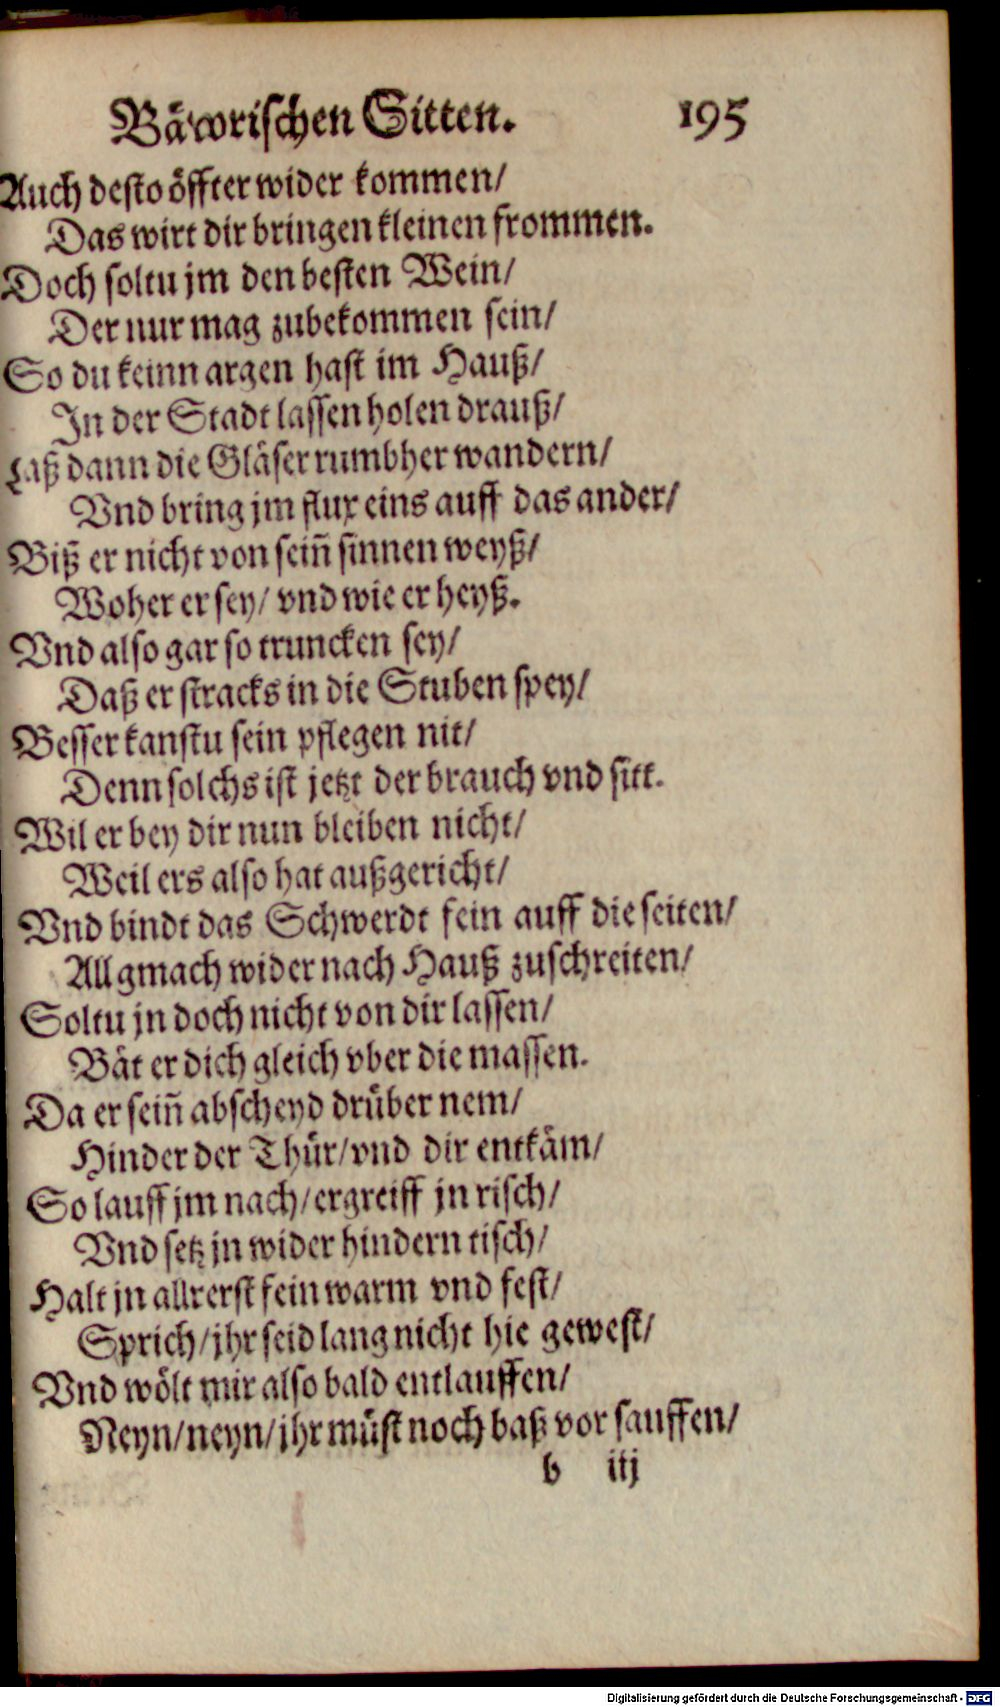 Bäwrischen Sitten. 195
Auch desto öffter wider kommen/
Das wirt dir bringen kleinen frommen.
Doch soltu jm den besten Wein/
Der nur mag zubekommen sein/
So du keinn argen hast im Hauß/
In der Stadt lassen holen drauß/
Laß dann die Gläser rumbher wandern/
Vnd bring jm flux eins auff das ander/
Biß er nicht von sein̄ sinnen weyß/
Woher er sey/ vnd wie er heyß.
Vnd also gar so truncken sey/
Daß er stracks in die Stuben spey/
Besser kanstu sein pflegen nit/
Denn solchs ist jetzt der brauch vnd sitt.
Wil er bey dir nun bleiben nicht/
Weil ers also hat außgericht/
Vnd bindt das Schwerdt fein auff die seiten/
All gmach wider nach Hauß zuschreiten/
Soltu jn doch nicht von dir lassen/
Bät er dich gleich vber die massen.
Da er sein̄ abscheyd drüber nem/
Hinder der Thür/ vnd dir entkäm/
So lauff jm nach/ ergreiff jn risch/
Vnd setz jn wider hindern tisch/
Halt jn allrerst fein warm vnd fest/
Sprich/ jhr seid lang nicht hie gewest/
Vnd wölt mir also bald entlauffen/
Neyn/ neyn/ jhr müst noch baß vor sauffen/
b iij
Digitalisierung gefördert durch die Deutsche Forschungsgemeinschaft - DFG